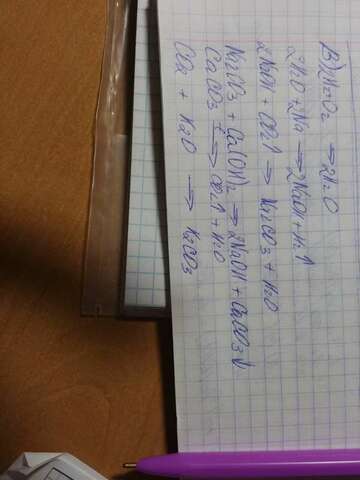 В) 2H2+O2 → 2H2O
2H2O + 2Na → 2NaOH + H2↑
2NaOH + CO2↑ → Na2CO3 + H2O
Na2CO3 + Ca(OH)2 → 2NaOH + CaCO3↓
CaCO3 t→ CO2↑ + H2O
CO2 + H2O → H2CO3